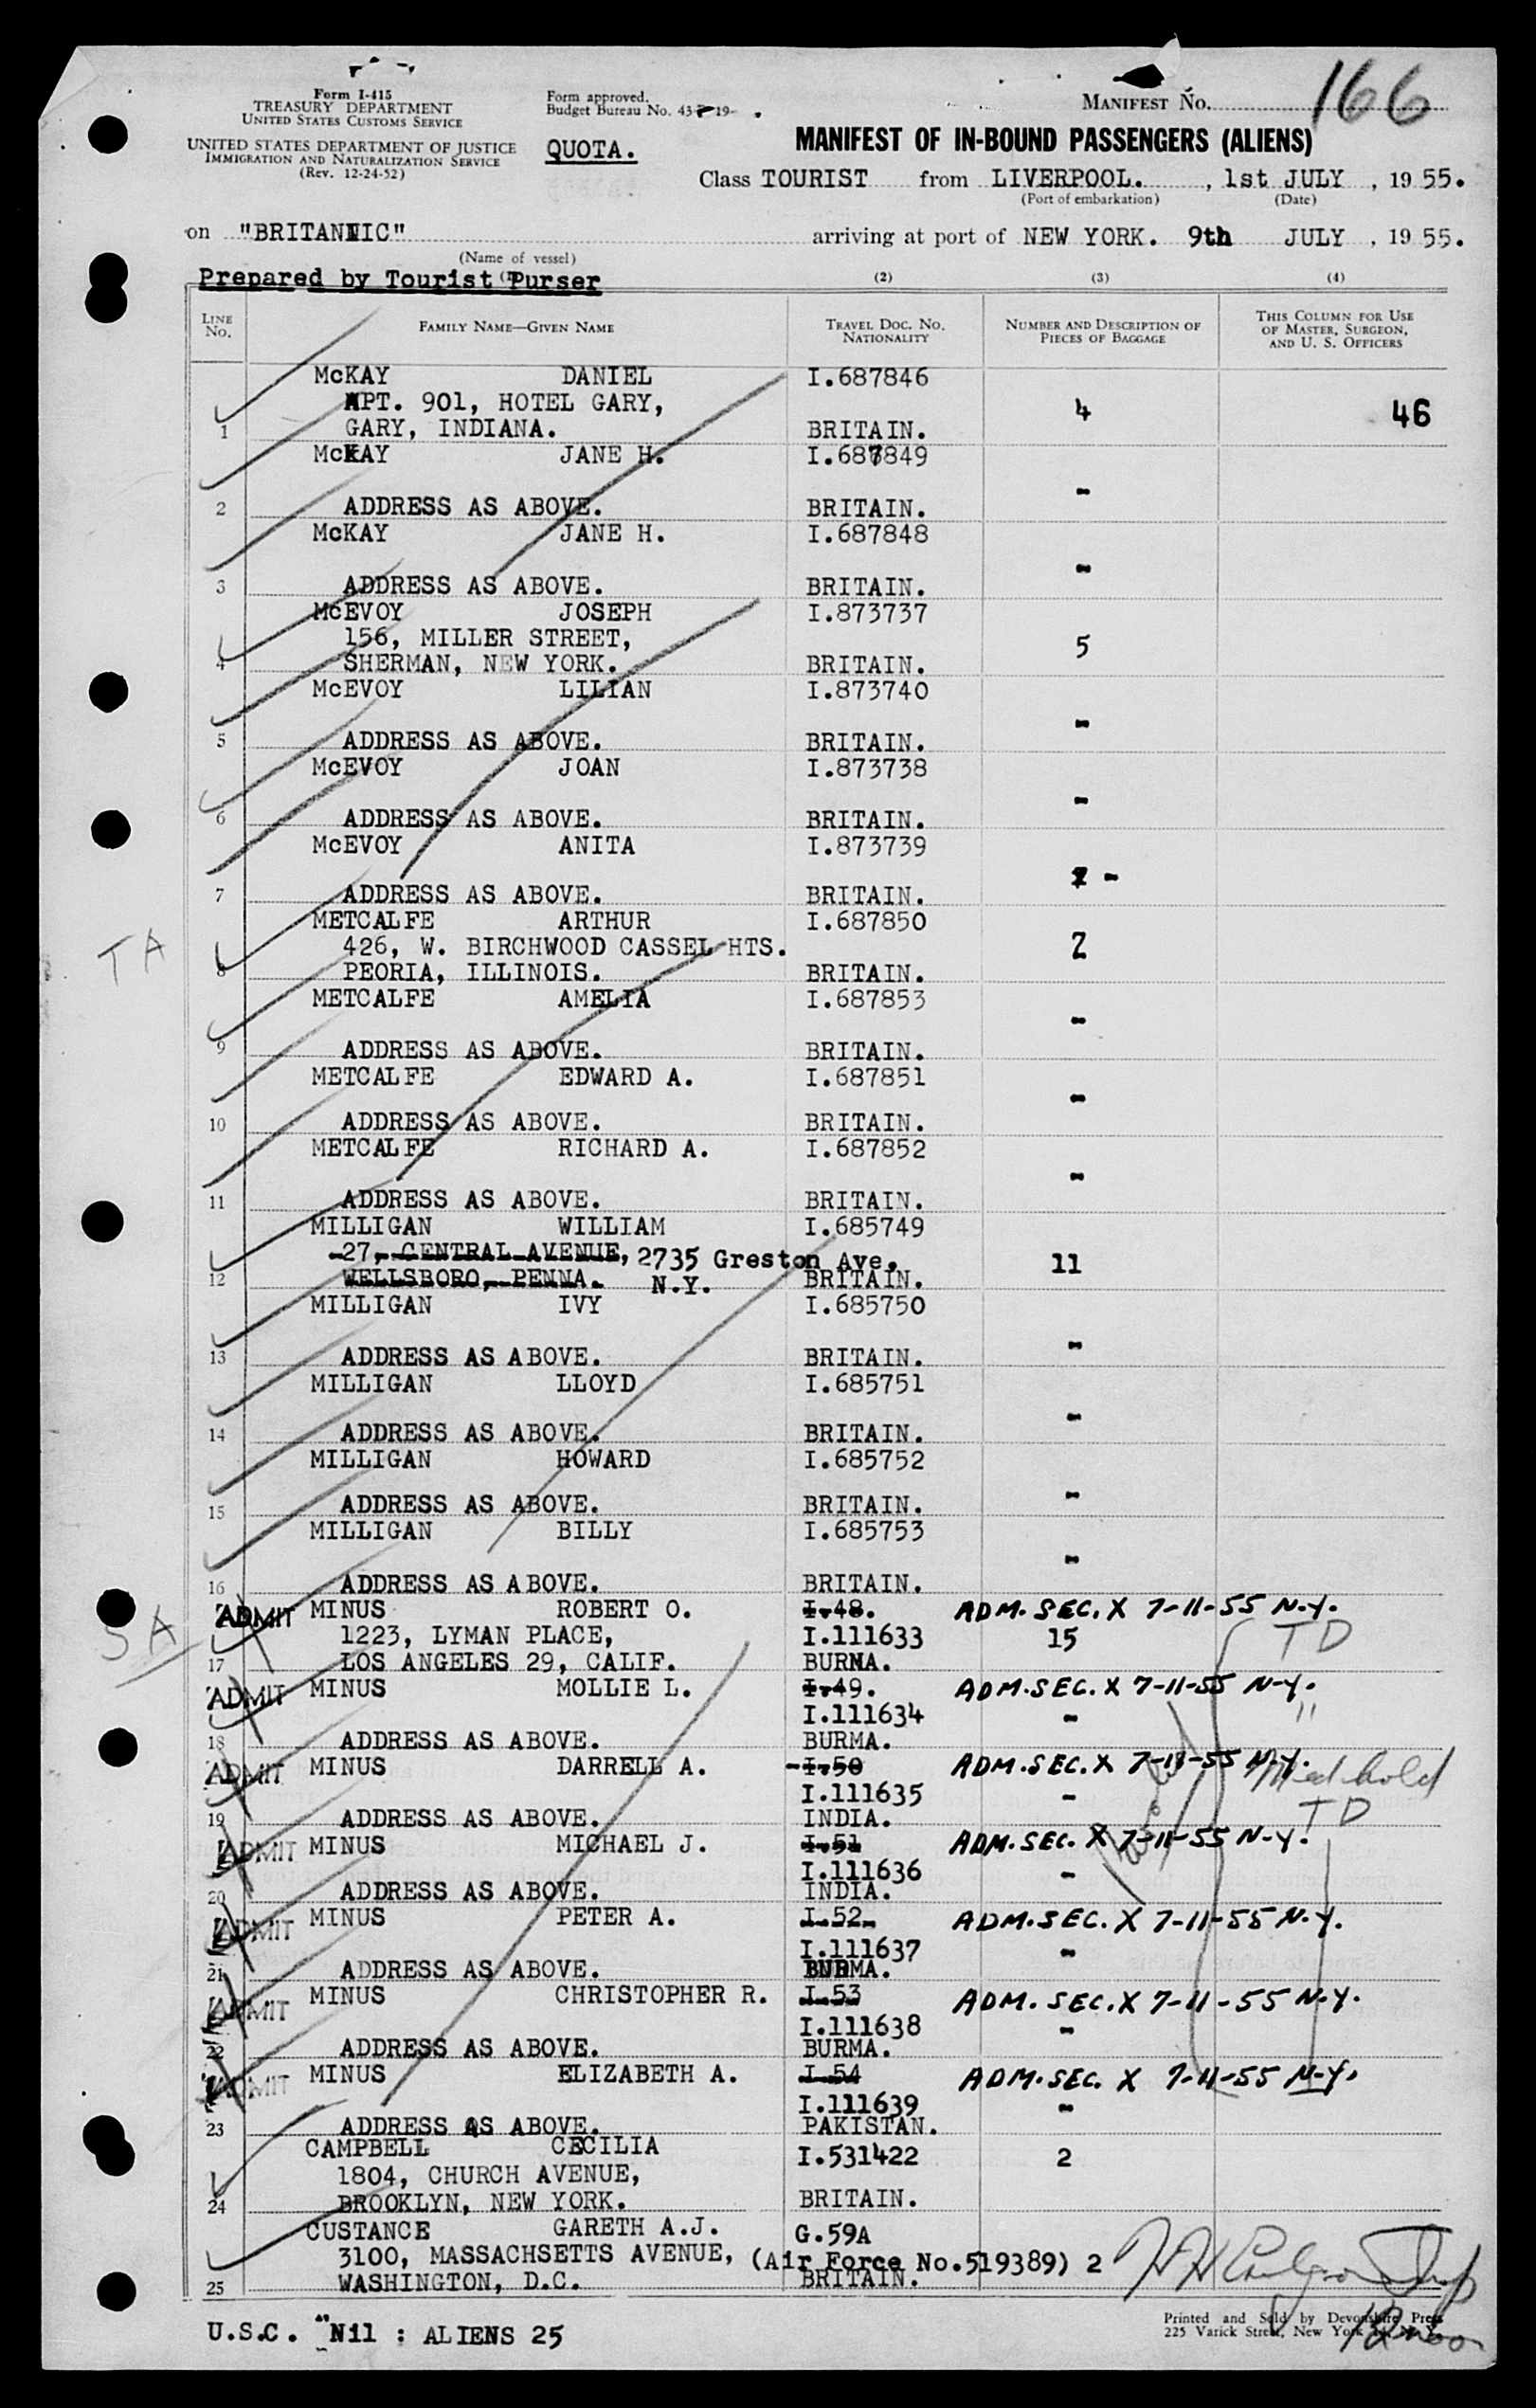 Form I-415
TREASURY DEPARTMENT
UNITED STATES CUSTOMS SERVICE
UNITED STATES DEPARTMENT OF JUSTICE
IMMIGRATION AND NATURALIZATION SERVICE
(Rev. 12-24-52)
Form approved.
Budget Bureau No. 43-19-
QUOTA.
MANIFEST NO. 166
MANIFEST OF IN-BOUND PASSENGERS (ALIENS)
Class TOURIST from LIVERPOOL. , 1st JULY , 19 55.
(Port of embarkation) (Date)
on "BRITANNIC" arriving at port of NEW YORK. 9th JULY , 19 55.
(Name of vessel)
Prepared by Tourist Purser
(1) (2) (3) (4)
LINE NO. FAMILY NAME—GIVEN NAME TRAVEL DOC. NO. NATIONALITY NUMBER AND DESCRIPTION OF PIECES OF BAGGAGE THIS COLUMN FOR USE OF MASTER, SURGEON, AND U. S. OFFICERS
McKAY DANIEL I.687846
APT. 901, HOTEL GARY, 4 46
1 GARY, INDIANA. BRITAIN.
McKAY JANE H. I.687849
-
2 ADDRESS AS ABOVE. BRITAIN.
McKAY JANE H. I.687848
-
3 ADDRESS AS ABOVE. BRITAIN.
McEVOY JOSEPH I.873737
156, MILLER STREET, 5
4 SHERMAN, NEW YORK. BRITAIN.
McEVOY LILIAN I.873740
-
5 ADDRESS AS ABOVE. BRITAIN.
McEVOY JOAN I.873738
-
6 ADDRESS AS ABOVE. BRITAIN.
McEVOY ANITA I.873739
-
7 ADDRESS AS ABOVE. BRITAIN.
METCALFE ARTHUR I.687850
TA 426, W. BIRCHWOOD CASSEL HTS. 2
8 PEORIA, ILLINOIS. BRITAIN.
METCALFE AMELIA I.687853
-
9 ADDRESS AS ABOVE. BRITAIN.
METCALFE EDWARD A. I.687851
-
10 ADDRESS AS ABOVE. BRITAIN.
METCALFE RICHARD A. I.687852
-
11 ADDRESS AS ABOVE. BRITAIN.
MILLIGAN WILLIAM I.685749
27, CENTRAL AVENUE, 2735 Greston Ave. 11
12 WELLSBORO, PENNA. N.Y. BRITAIN.
MILLIGAN IVY I.685750
-
13 ADDRESS AS ABOVE. BRITAIN.
MILLIGAN LLOYD I.685751
-
14 ADDRESS AS ABOVE. BRITAIN.
MILLIGAN HOWARD I.685752
-
15 ADDRESS AS ABOVE. BRITAIN.
MILLIGAN BILLY I.685753
-
16 ADDRESS AS ABOVE. BRITAIN.
ADMIT MINUS ROBERT O. I.48. ADM. SEC. X 7-11-55 N.Y.
SA 1223, LYMAN PLACE, I.111633 15 TD
17 LOS ANGELES 29, CALIF. BURMA.
ADMIT MINUS MOLLIE L. I.49. ADM. SEC. X 7-11-55 N.Y.
I.111634 - "
18 ADDRESS AS ABOVE. BURMA.
ADMIT MINUS DARRELL A. I.50 ADM. SEC. X 7-11-55 N.Y. Med hold
I.111635 - TD
19 ADDRESS AS ABOVE. INDIA.
ADMIT MINUS MICHAEL J. I.51 ADM. SEC. X 7-11-55 N.Y.
I.111636 -
20 ADDRESS AS ABOVE. INDIA.
ADMIT MINUS PETER A. I.52 ADM. SEC. X 7-11-55 N.Y.
I.111637 -
21 ADDRESS AS ABOVE. BURMA.
ADMIT MINUS CHRISTOPHER R. I.53 ADM. SEC. X 7-11-55 N.Y.
I.111638 -
22 ADDRESS AS ABOVE. BURMA.
ADMIT MINUS ELIZABETH A. I.54 ADM. SEC. X 7-11-55 N.Y.
I.111639 -
23 ADDRESS AS ABOVE. PAKISTAN.
CAMPBELL CECILIA I.531422 2
1804, CHURCH AVENUE,
24 BROOKLYN, NEW YORK. BRITAIN.
CUSTANCE GARETH A.J. G.59A
3100, MASSACHSETTS AVENUE, (Air Force No.519389) 2
25 WASHINGTON, D.C. BRITAIN.
U.S.C. "Nil : ALIENS 25
Printed and Sold by Devonshire Press
225 Varick Street, New York